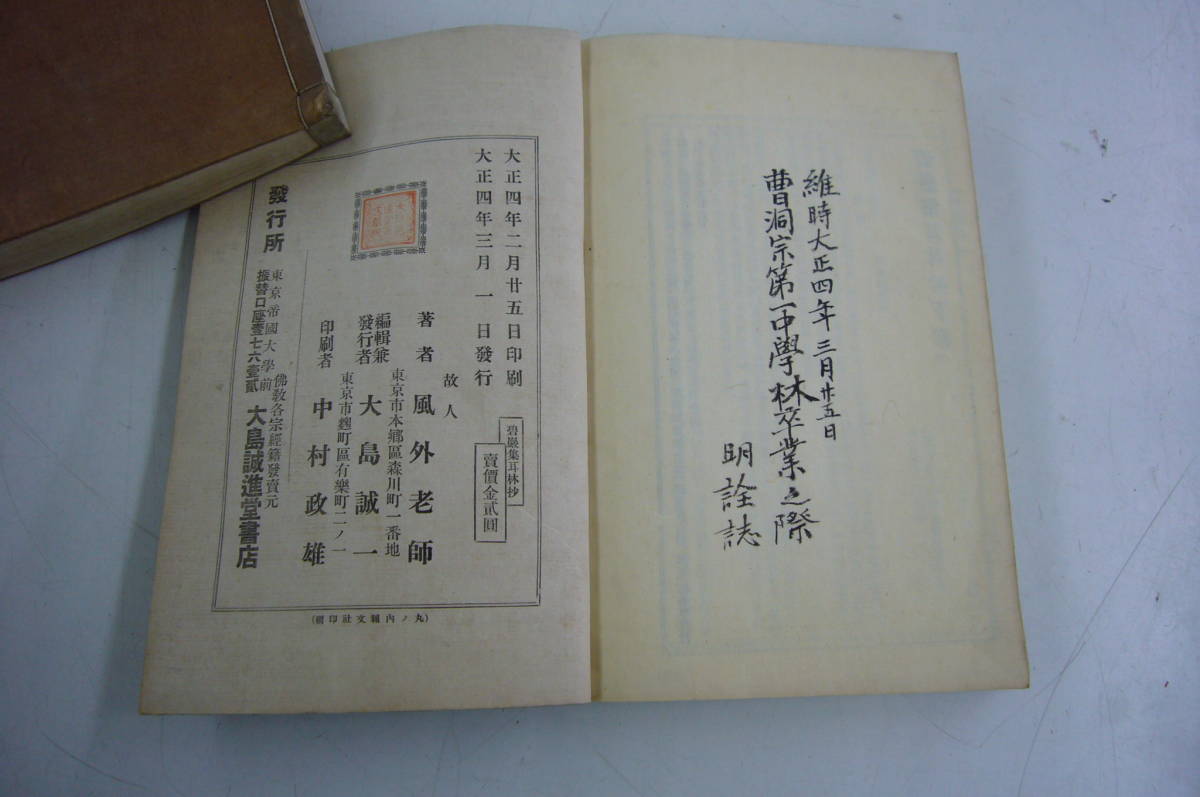 維時大正四年三月廿五日
曹洞宗第一中學林卒業之際
明詮誌
大正四年二月廿五日印刷
大正四年三月一日發行
碧巖集耳林抄
賣價金貳圓
故人
著者 風外老師
東京市本鄕區森川町一番地
編輯兼發行者 大島誠一
東京市麹町區有樂町二ノ一
印刷者 中村政雄
發行所
東京帝國大學前
振替口座壹七六壹貳
佛敎各宗經籍發賣元
大島誠進堂書店